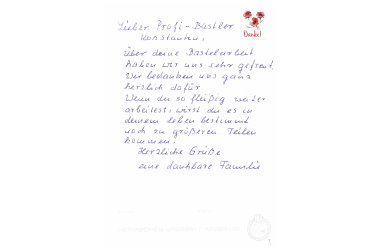 Lieber Profi-Bastler
Konstantin,
Danke!
über deine Bastelarbeit
haben wir uns sehr gefreut.
Wir bedanken uns ganz
herzlich dafür
Wenn du so fleißig weiter
arbeitest, wirst du es in
deinem leben bestimmt
noch zu größeren Teilen
kommen.
Herzliche Grüße
eine dankbare Familie